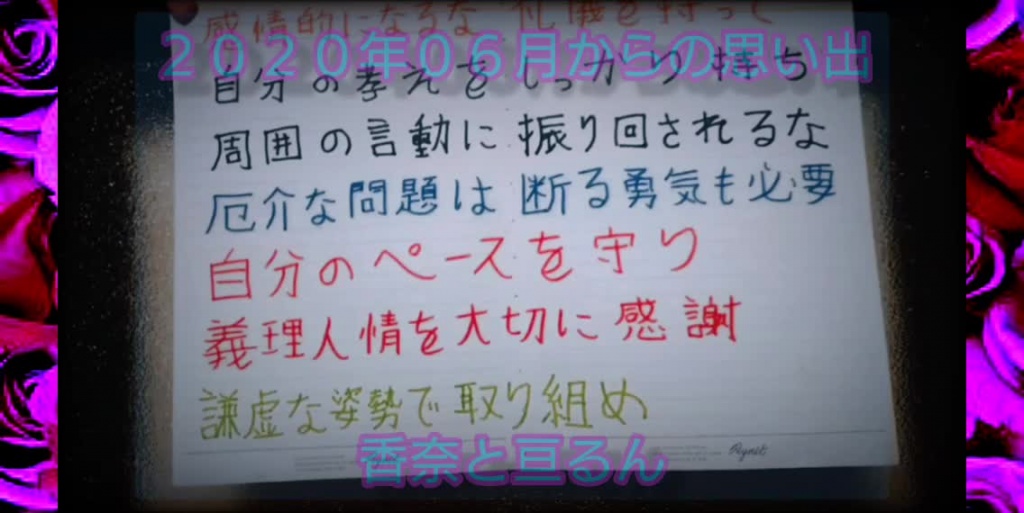 感情的になるな 礼儀を持って
２０２０年０６月からの思い出
自分の考えをしっかり持ち
周囲の言動に振り回されるな
厄介な問題は断る勇気も必要
自分のペースを守り
義理人情を大切に感謝
謙虚な姿勢で取り組め
香奈と亘るん